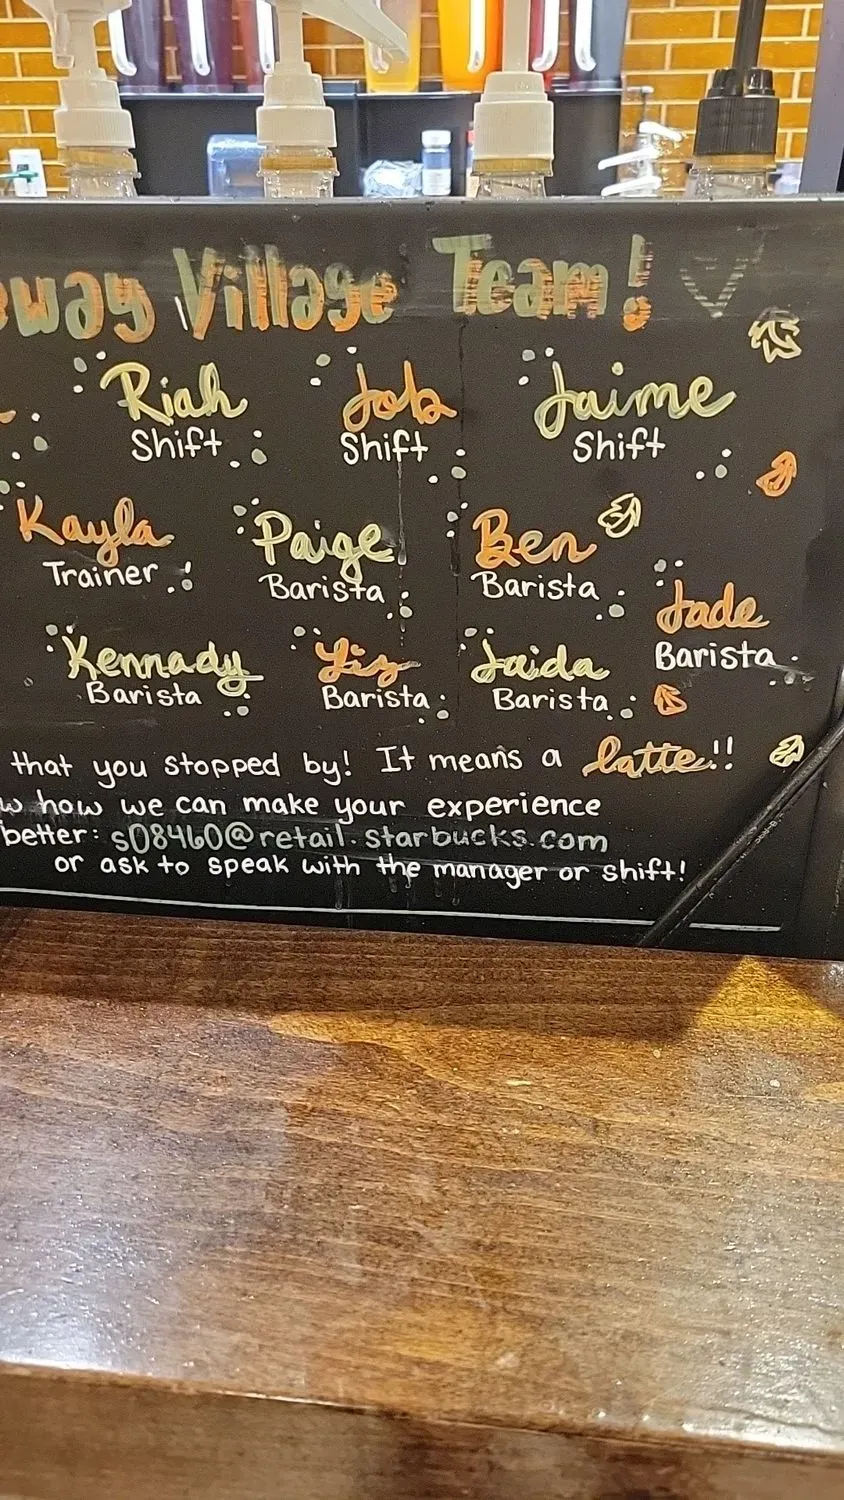 Village Team!
Riah Job Jaime
Shift Shift Shift
Kayla Paige Ben
Trainer Barista Barista
Jade
Barista
Kennady Liz Jaida
Barista Barista Barista
that you stopped by! It means a latte!!
how we can make your experience
better: s08460@retail.starbucks.com
or ask to speak with the manager or shift!